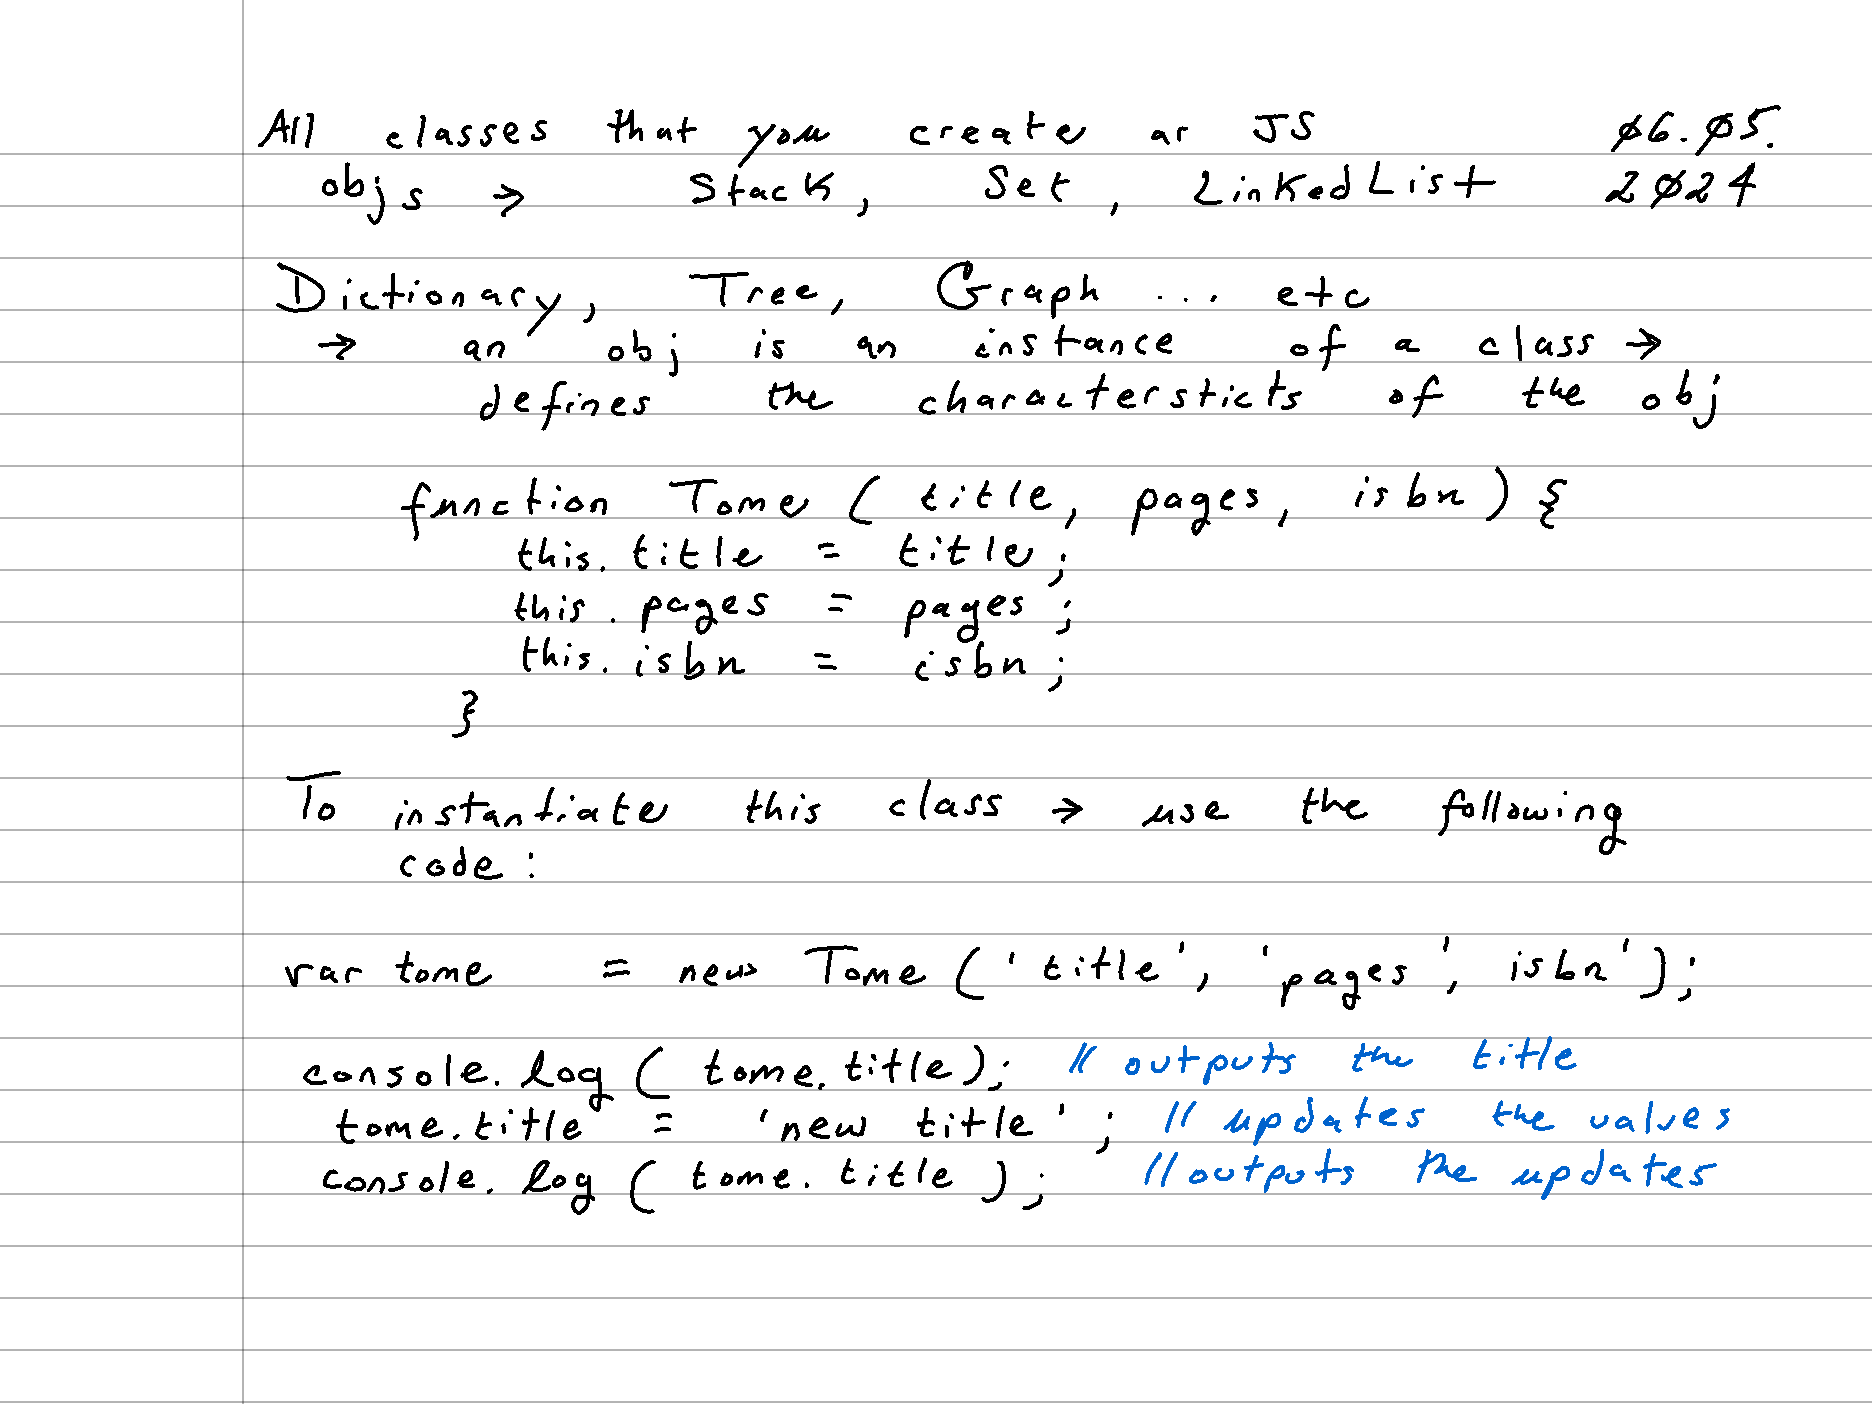 All classes that you create ar JS ø6.ø5.
objs → Stack, Set, LinkedList 2ø24
Dictionary, Tree, Graph ... etc
→ an obj is an instance of a class →
defines the charactersticts of the obj
function Tome ( title, pages, isbn ) {
this. title = title;
this. pages = pages ;
this. isbn = isbn ;
}
To instantiate this class → use the following
code :
var tome = new Tome ( 'title', 'pages', isbn' );
console. log ( tome. title ); // outputs the title
tome. title = 'new title' ; // updates the values
console. log ( tome. title ) ; // outputs the updates